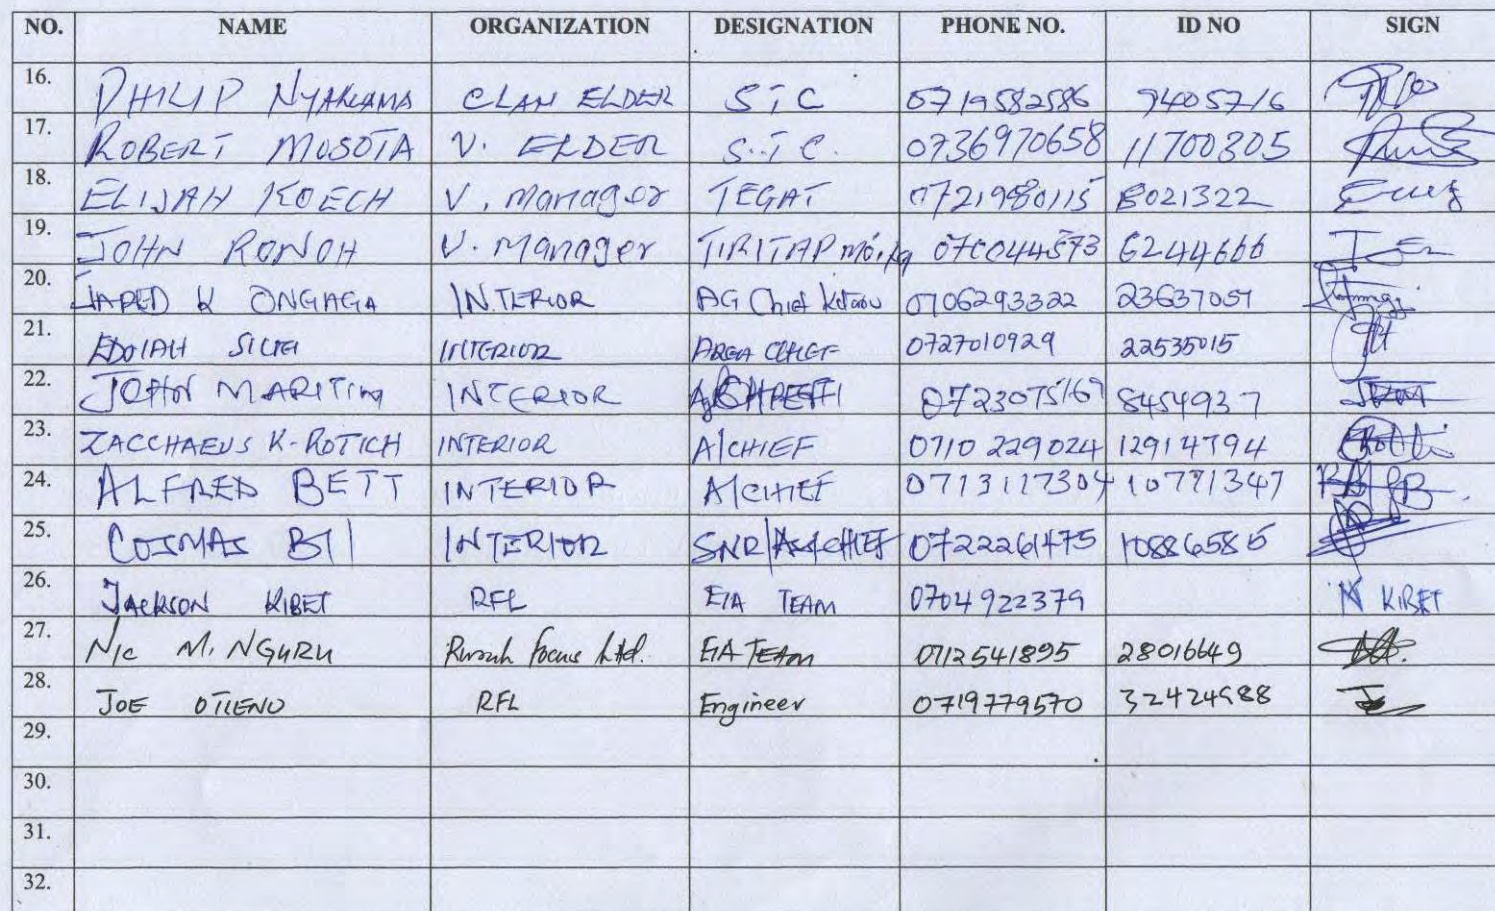 NO. NAME ORGANIZATION DESIGNATION PHONE NO. ID NO SIGN
16. PHILIP NYAKAMA CLAN ELDER S T C 0719582586 9405716
17. ROBERT MOSOTA V. ELDER S.T C. 0736970658 11700305
18. ELIJAH KOECH V. manager TEGAT 0721980115 8021322
19. JOHN RONOH V. Manager TIRITAP 6244666
20. JAPED K ONGAGA INTERIOR AG Chief 0706293322 23637051
21. INTERIOR AREA CHIEF 0727010929 22535015
22. JOHN MARITIM INTERIOR 0723075169 8454937
23. ZACCHAEUS K-ROTICH INTERIOR A/CHIEF 0710 229024 12914794
24. ALFRED BETT INTERIOR A/CHIEF 0713117304 10771347
25. COSMAS BII INTERIOR SNR/ASS/CHIEF 0722261475 10886585
26. JACKSON KIBET RFL EIA TEAM 0704922379 KIBET
27. Nic M. NGURU Focus Ltd. EIA TEAM 0712541895 28016649
28. JOE OTIENO RFL Engineer 0719779570 32424588
29.
30.
31.
32.